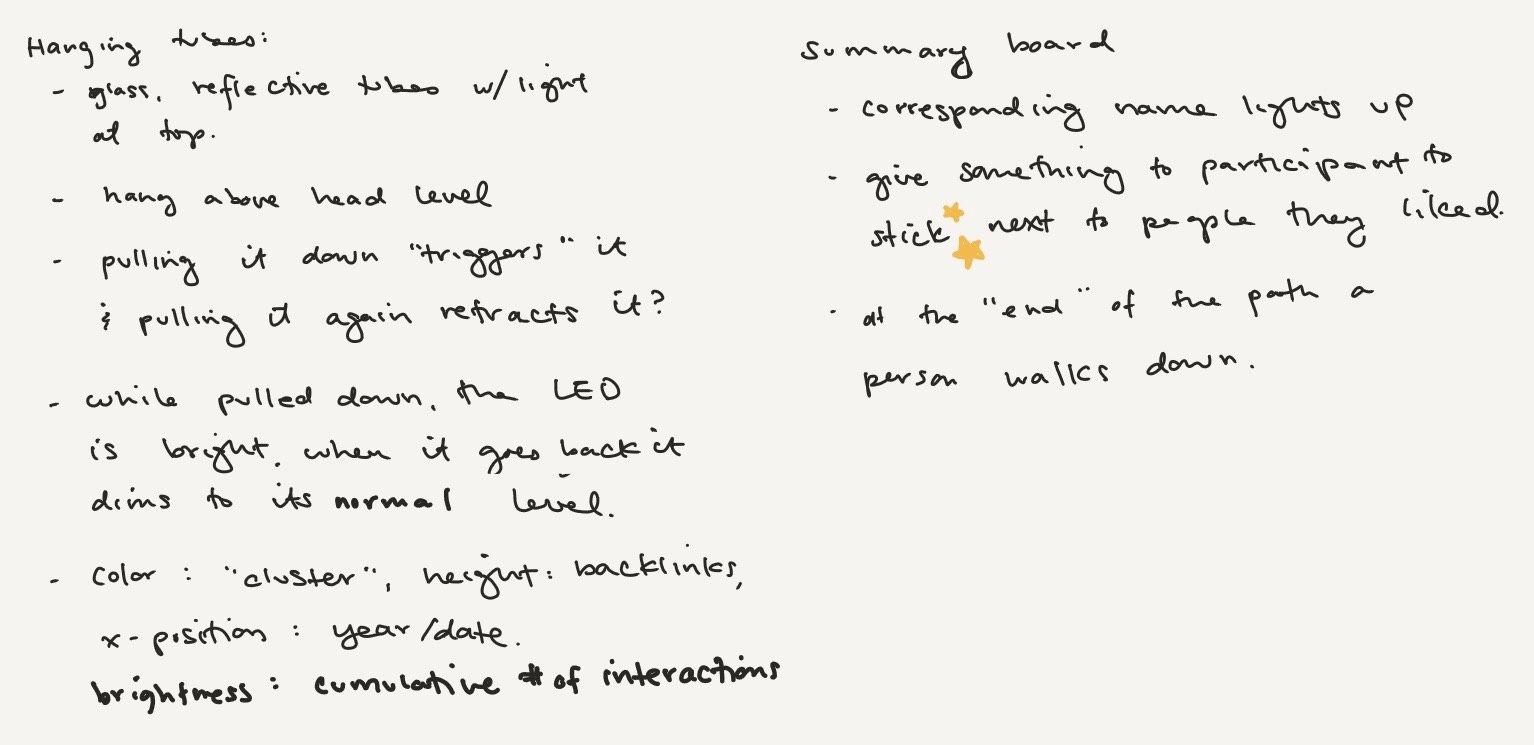 Hanging tubes:
- glass, reflective tubes w/ light
at top.
- hang above head level
- pulling it down "triggers" it
& pulling it again retracts it?
- while pulled down, the LED
is bright. when it goes back it
dims to its normal level.
- color : "cluster", height: backlinks,
x-position : year/date.
brightness : cumulative # of interactions
summary board
- corresponding name lights up
- give something to participant to
stick next to people they liked.
- at the "end" of the path a
person walks down.